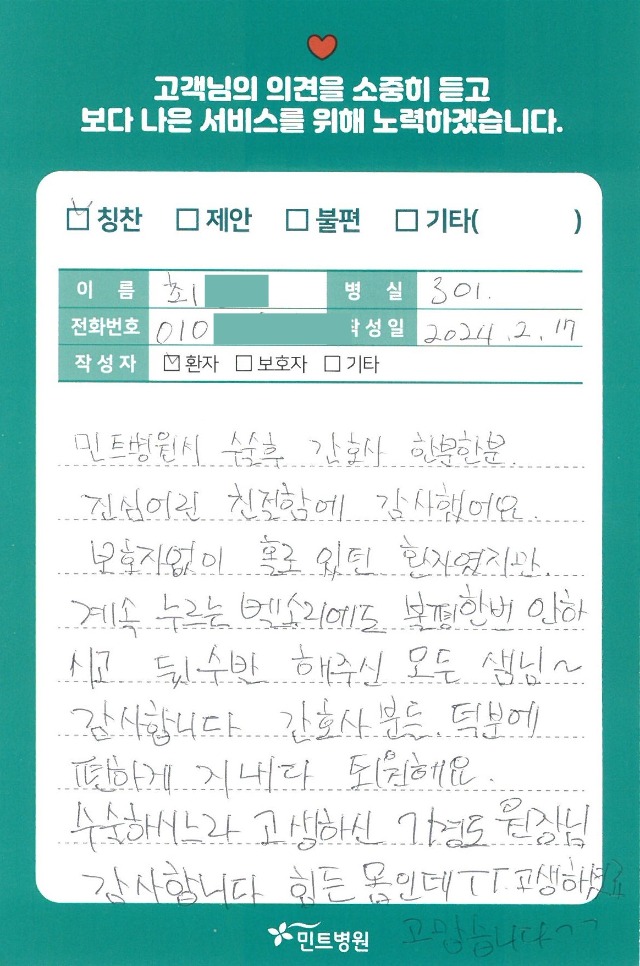 고객님의 의견을 소중히 듣고
보다 나은 서비스를 위해 노력하겠습니다.
칭찬 제안 불편 기타( )
이 름 최 병 실 301.
전화번호 010 작성일 2024.2.17
작성자 환자 보호자 기타
민트병원서 수술후 간호사 한분한분.
진심어린 친절함에 감사했어요.
보호자없이 홀로 있던 환자였지만.
계속 누르는 벨소리에도 불평한번 안하
시고 뒷수반 해주신 모든 샘님~
감사합니다 간호사분들. 덕분에
편하게 지내다 퇴원해요.
수술하시느라 고생하신 기경도 원장님
감사합니다 힘든 몸인데 TT. 고생하셨죠
고맙습니다ㄱㄱ
민트병원